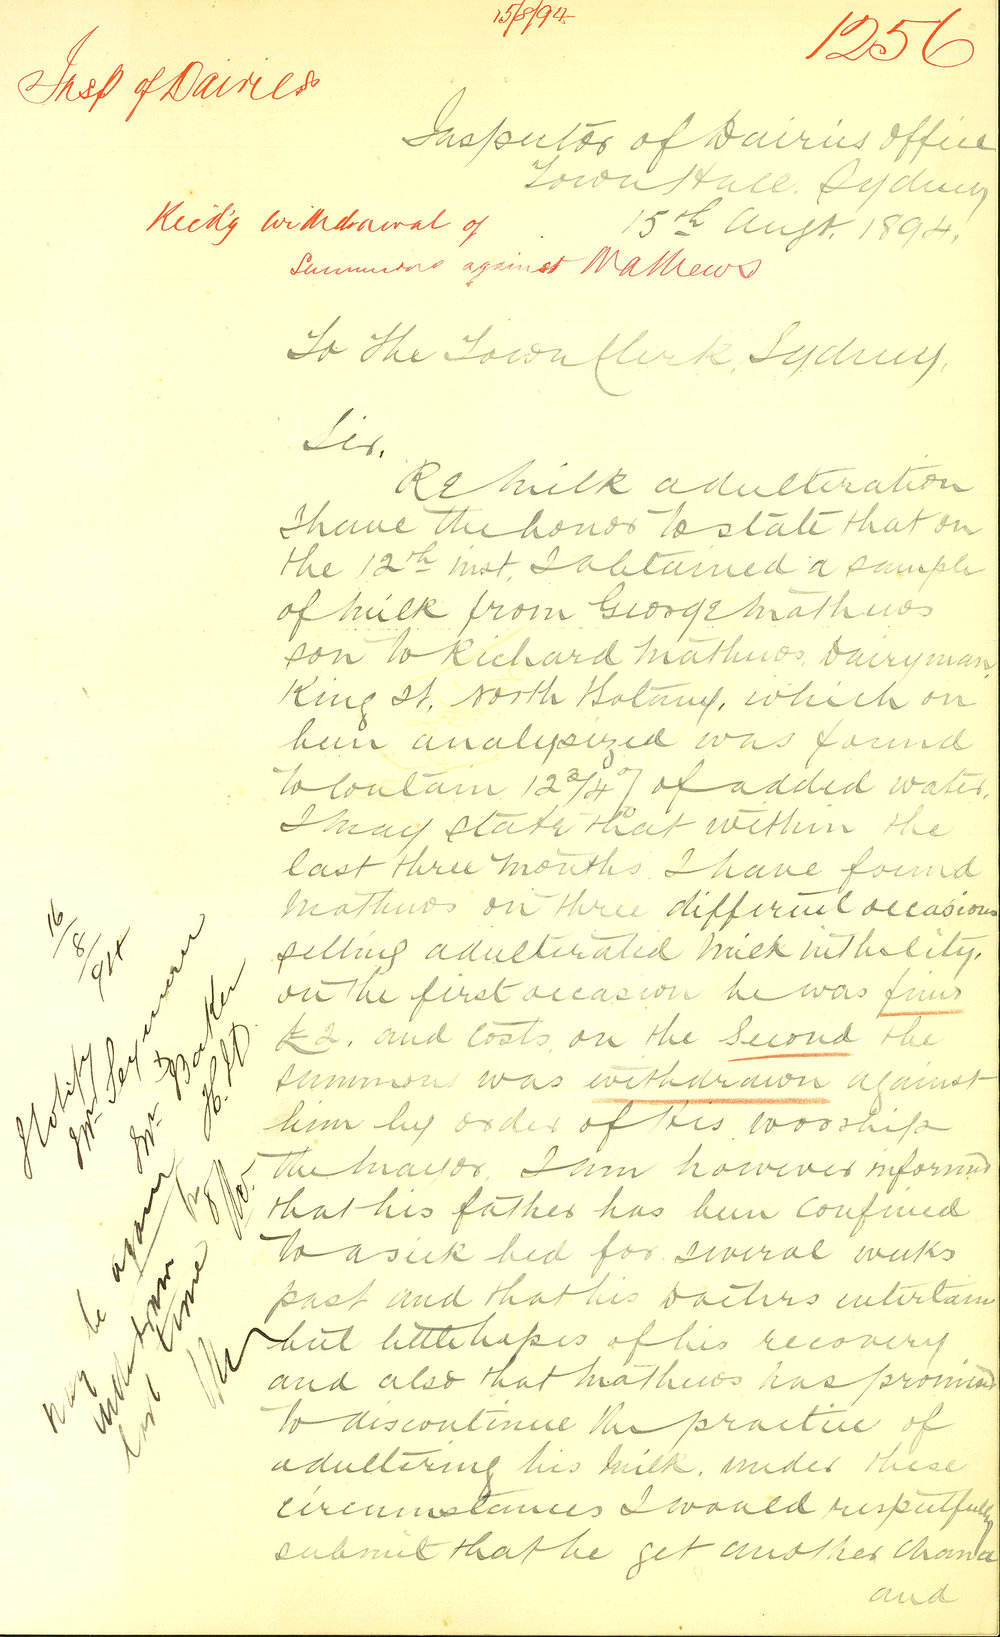 15/8/94
1256
Insp of Dairies
Inspector of Dairies Office
Town Hall. Sydney
15th Augt. 1894.
Recd'g withdrawal of
Summons against Mathews
To the Town Clerk, Sydney.
Sir,
Re Milk adulteration
I have the honor to state that on
the 12th inst, I obtained a sample
of milk from George Mathews
son to Richard Mathews, Dairyman,
King St, North Botany, which on
been analysized was found
to contain 12 3/4 % of added water.
I may state that within the
last three months I have found
Mathews on three different occasions
selling adulterated milk in the City.
on the first occasion he was fined
£2. and costs, on the Second the
summons was withdrawn against
him by order of His Worship
the Mayor. I am however informed
that his father has been confined
to a sick bed for several weeks
past and that his Docters entertain
but little hopes of his recovery
and also that Mathews has promised
to discontinue the practice of
adultering his Milk. under these
circumstances I would respectfully
submit that he get another chance
and
may be again
withdrawn for
last time
16/8/94
Notify
Mr Seymour
& Mr Barker